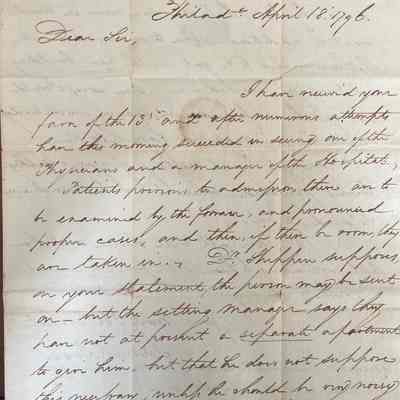 Philad.ᵃ April 18. 1796.
Dear Sir,
I have receiv'd your
favr of the 13.ᵗ and after numerous attempts
have this morning succeeded in seeing one of the
Physicians and a manager of the Hospital,
Patients previous to admission there are to
be examined by the former, and pronounced
proper cases, and then, if there be room, they
are taken in. Dr. Shippen supposes
on your statement, the person may be sent
on — but the sitting manager says they
have not at present a separate apartment
to give him, but that he does not suppose
this necessary, unless he should be very noisy